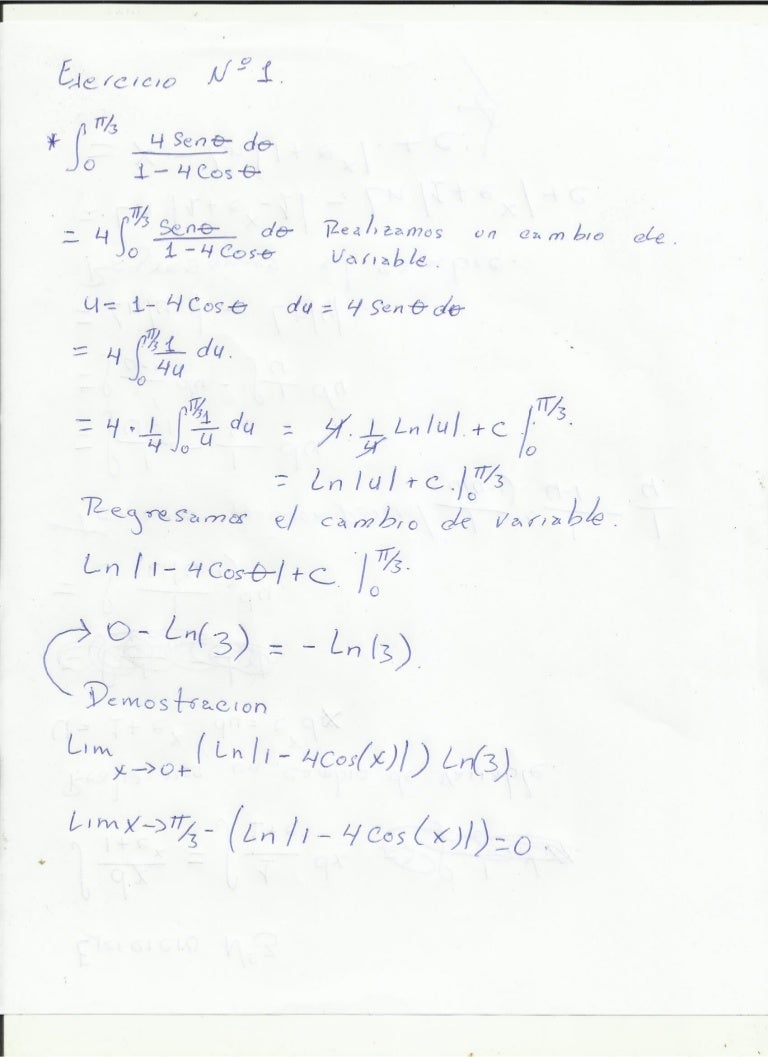 Ejercicio Nº 1.
* ∫₀^π/3 4 Senθ dθ / 1 - 4 Cosθ
= 4 ∫₀^π/3 Senθ / 1 - 4 Cosθ dθ Realizamos un cambio de.
Variable.
u = 1 - 4 Cosθ du = 4 Senθ dθ
= 4 ∫₀^π/3 1/4u du.
= 4 · 1/4 ∫₀^π/3 1/u du = 4 · 1/4 Ln|u|. + C |₀^π/3.
= Ln|u| + C. |₀^π/3
Regresamos el cambio de variable.
Ln |1 - 4Cosθ| + C. |₀^π/3.
0 - Ln(3) = - Ln(3).
Demostracion
Lim x→0+ (Ln|1 - 4cos(x)|) Ln(3)
Lim x→π/3- (Ln|1 - 4cos(x)|) = 0.